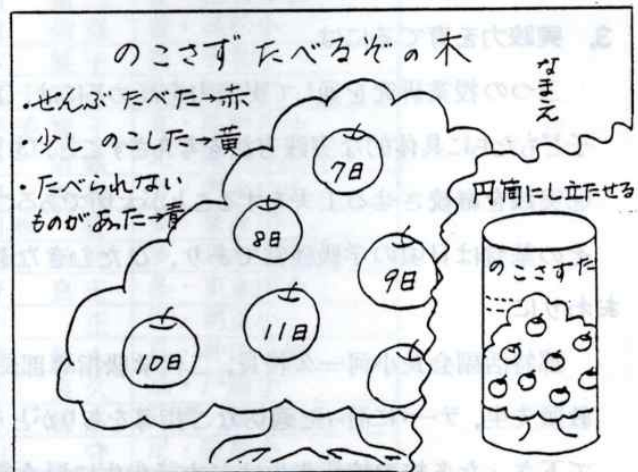 のこさずたべるぞの木
なまえ
・ぜんぶたべた→赤
・少しのこした→黄
・たべられない
ものがあった→青
7日
8日
9日
10日
11日
円筒にし立たせる
のこさずた